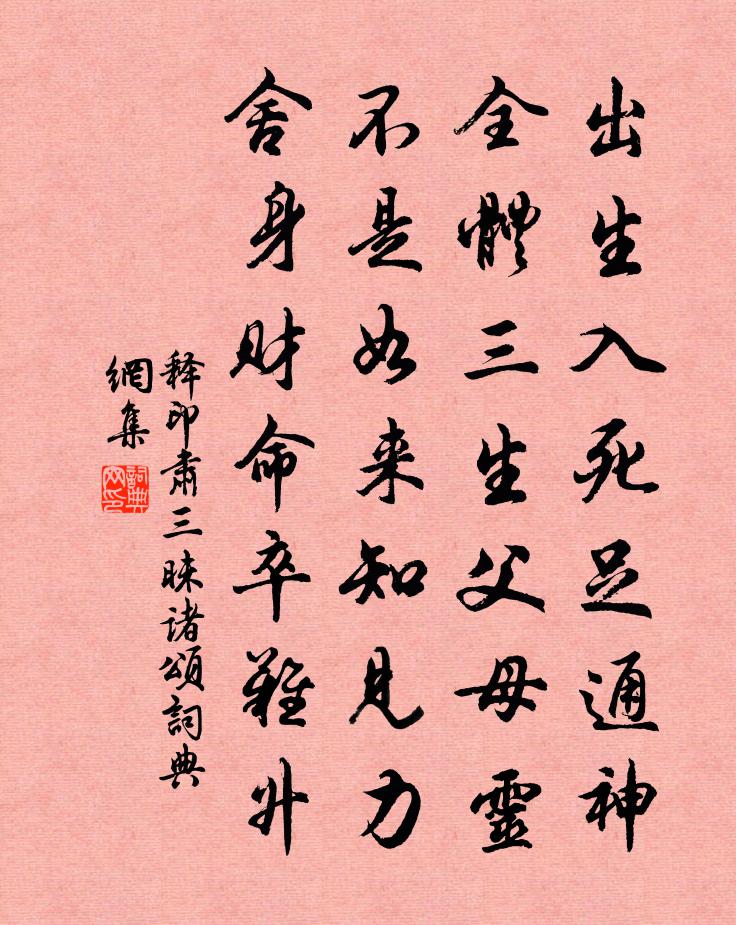 出生入死足通神
全體三生父母靈
不是如来知見力
舍身财命卒難升
释印肃三昧诸頌詞典
網集
詞典
网印